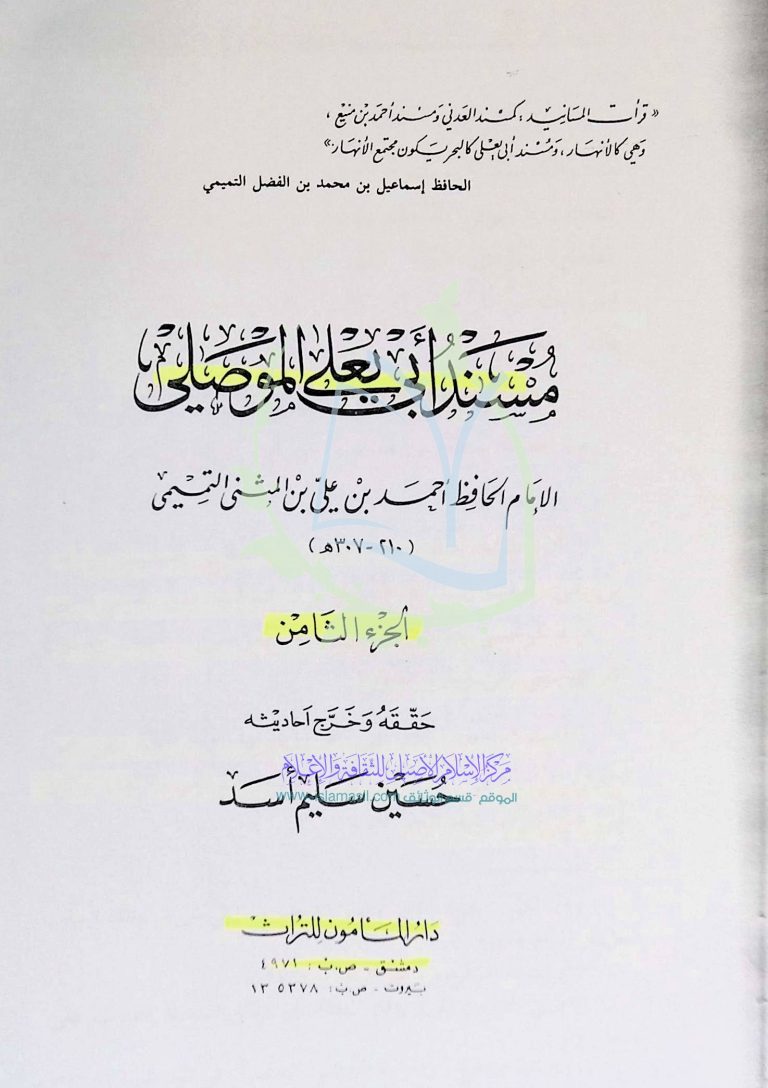 « قرأت المسانيد : كمسند العدني ومسند أحمد بن منيع ،
وهي كالأنهار ، ومسند أبي يعلى كالبحر يكون مجتمع الأنهار »
الحافظ إسماعيل بن محمد بن الفضل التميمي
مُسْنَدُ أَبي يَعْلى المَوْصلي
الإمام الحافظ أحمد بن علي بن المثنى التميمي
( ٢١٠ - ٣٠٧ هـ )
الجزء الثامن
حَقّقَهُ وَخَرَّج أحاديثه
مركز الإسلام الأصيل للثقافة والإعلام
حُسَين سَليم أَسَد
الموقع - قسم الوثائق www.islamasil.com
دار المأمون للتراث
دمشق - ص.ب : ٤٩٧١
بيروت - ص ب : ٥٣٧٨ ١٣